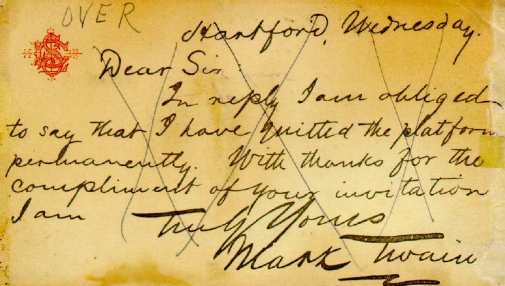 OVER
Hartford, Wednesday.
Dear Sir:
In reply I am obliged
to say that I have quitted the platform
permanently. With thanks for the
compliment of your invitation
I am Truly Yours
Mark Twain